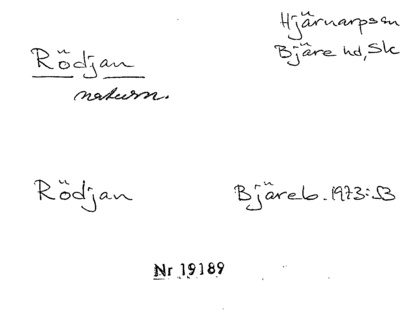 Hjärnarps sn
Bjäre hd, Sk
Rödjan
naturn.
Rödjan Bjäreb. 1973:53
Nr 19189